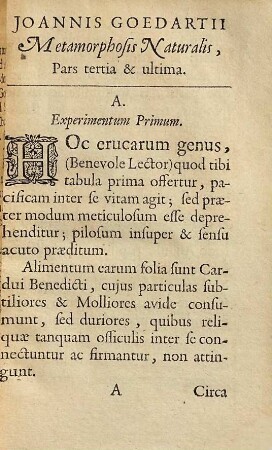 JOANNIS GOEDARTII
Metamorphoſis Naturalis,
Pars tertia & ultima.
A.
Experimentum Primum.
HOc erucarum genus,
(Benevole Lector) quod tibi
tabula prima offertur, pa-
cificam inter ſe vitam agit; ſed præ-
ter modum meticuloſum eſſe depre-
henditur; piloſum inſuper & ſenſu
acuto præditum.
Alimentum earum folia ſunt Car-
dui Benedicti, cujus particulas ſub-
tiliores & Molliores avide conſu-
munt, ſed duriores, quibus reli-
quæ tanquam officulis inter ſe co-
nectuntur ac firmantur, non attin-
gunt.
A Circa